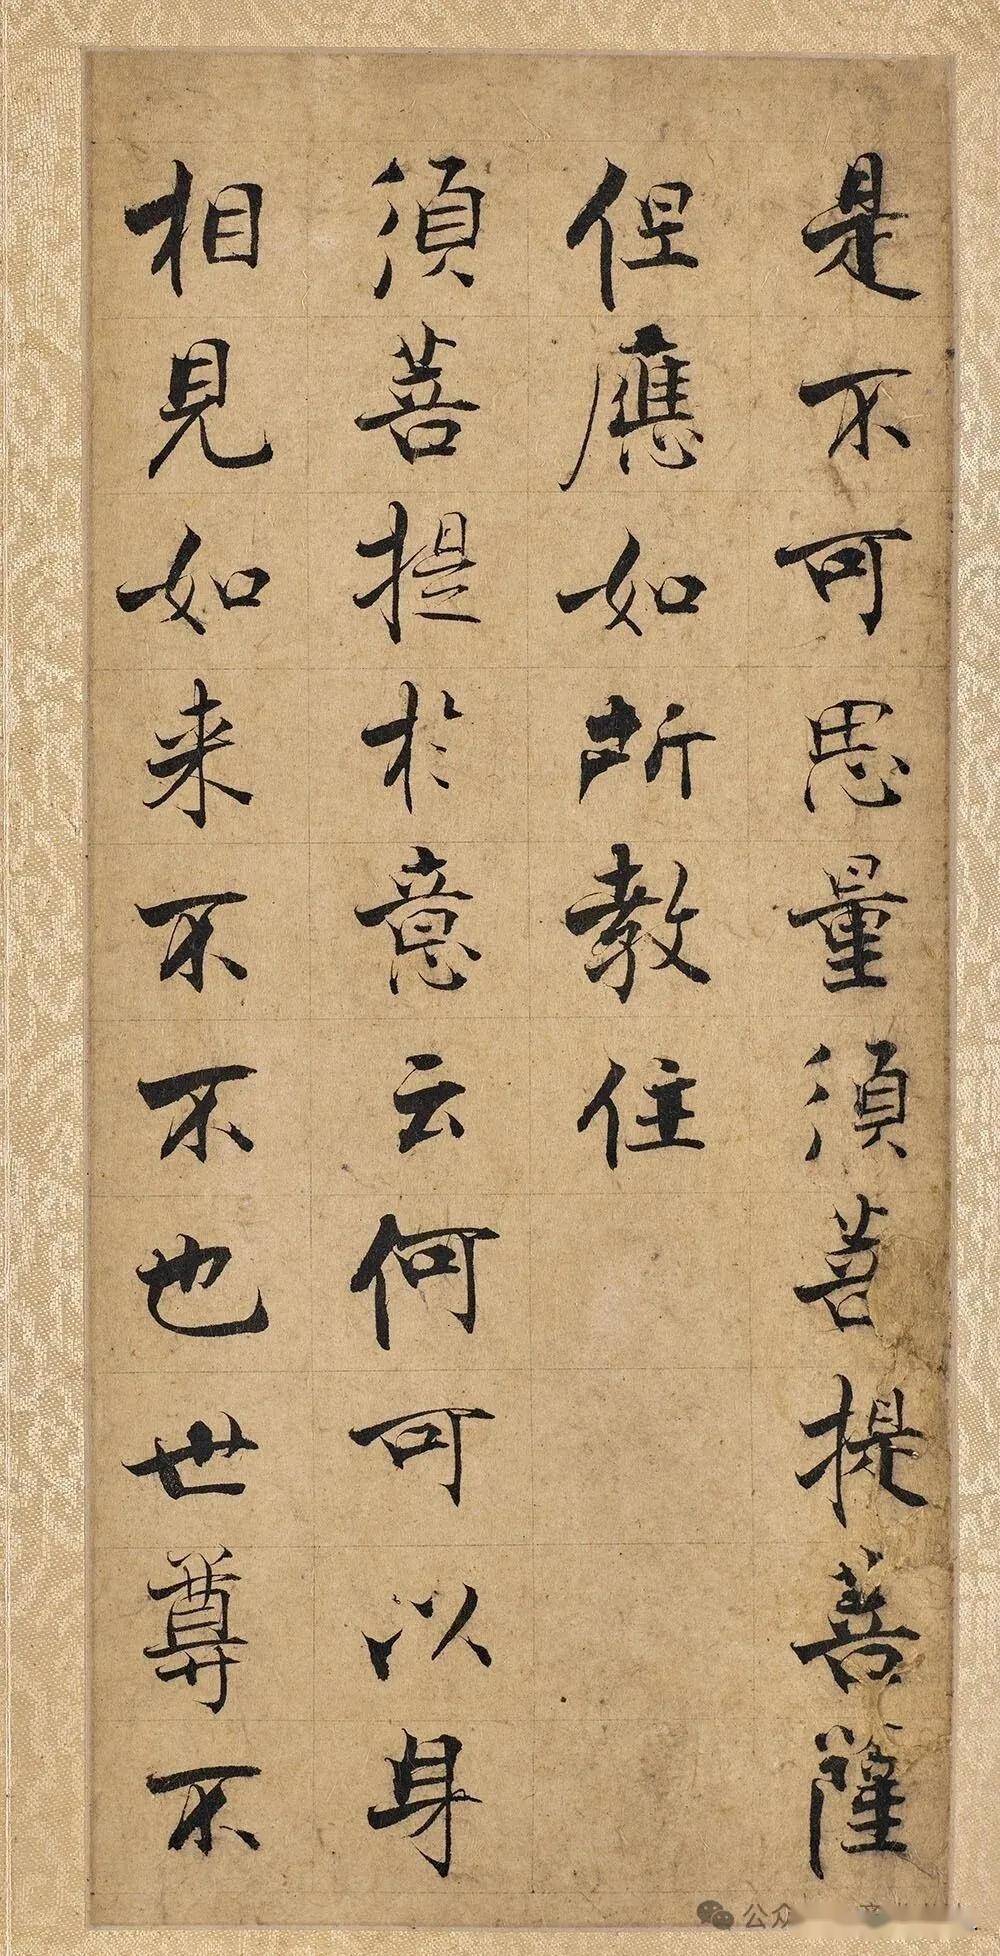 是不可思量須菩提菩薩
但應如所教住
須菩提於意云何可以身
相見如来不不也世尊不
公众